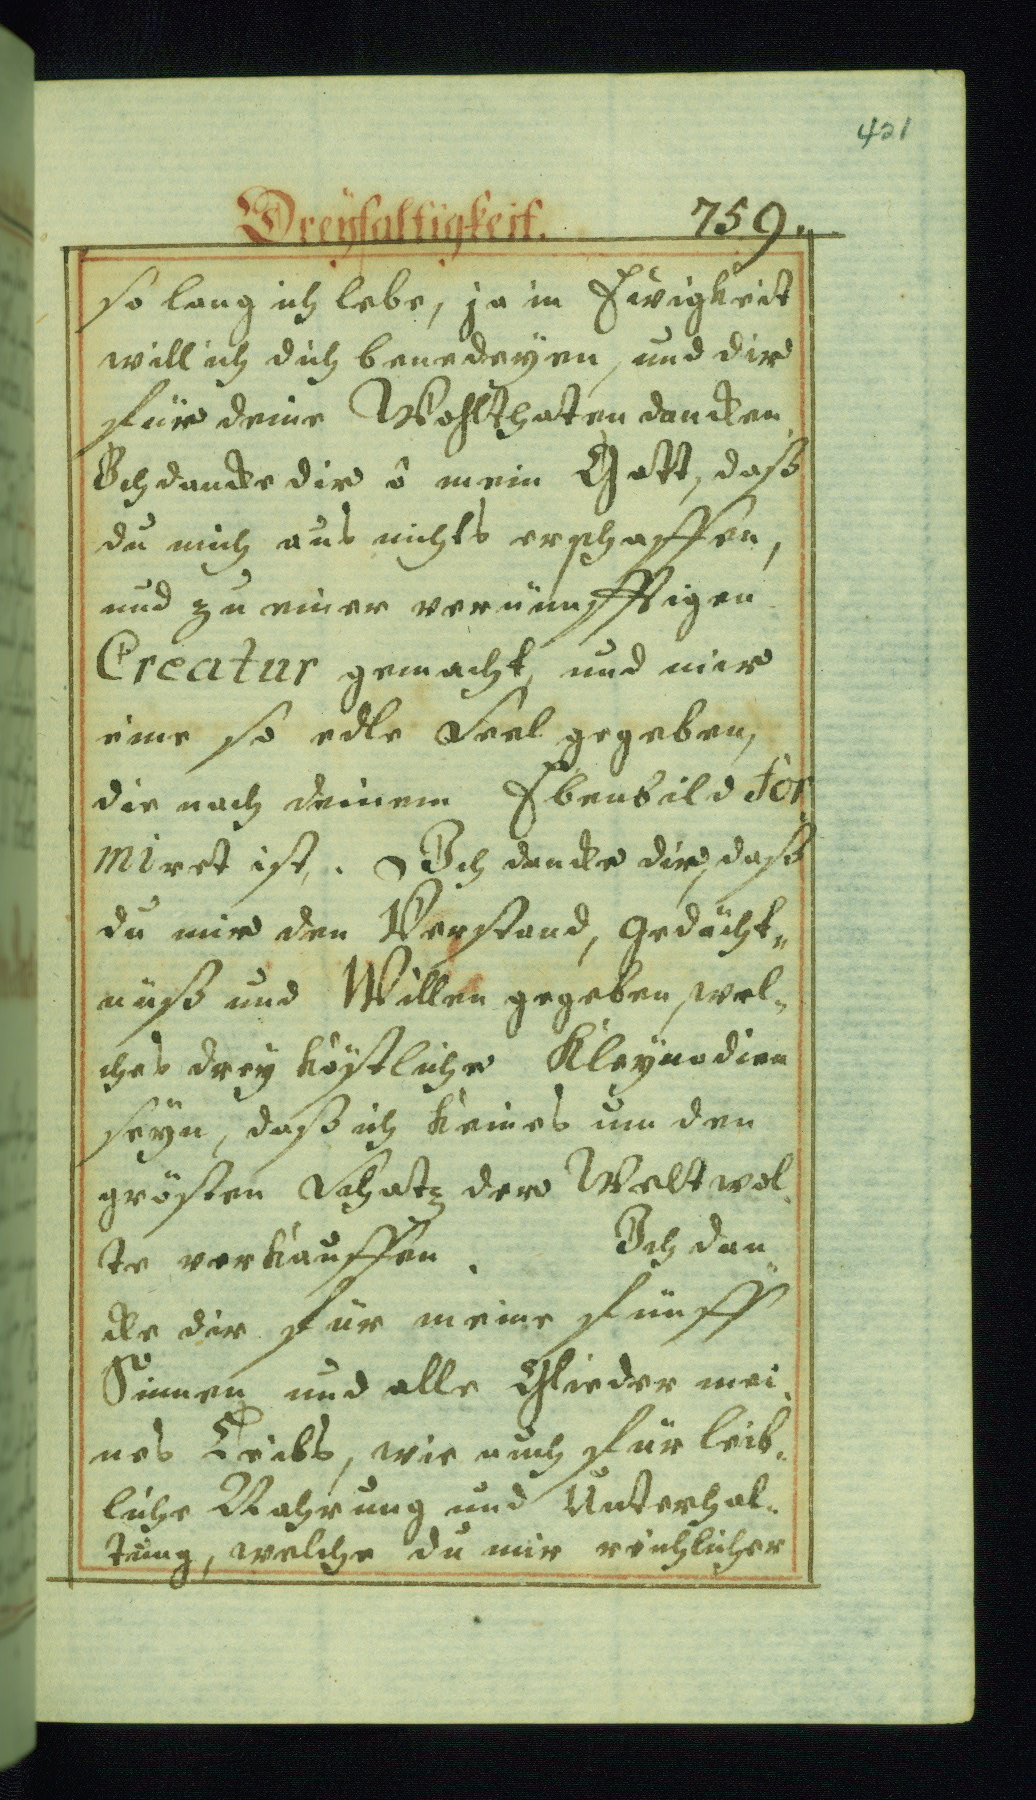 421
Dreÿfaltigkeit. 759.
so lang ich lebe, ja in Ewigkeit
will ich dich benedeÿen, und dir
für deine Wohlthaten dancken.
Ich dancke dir ô mein Gott, daß
du mich aus nichts erschaffen,
und zu einer vernünfftigen
Creatur gemacht, und mir
eine so edle Seel gegeben,
die nach deinem Ebenbild for
miret ist. Ich dancke dir, daß
du mir den Verstand, Gedächt„
nüß und Willen gegeben, wel„
ches dreÿ köstliche Kleÿnodien
seÿn, daß ich keines um den
grösten Schatz der Welt wol„
te verkauffen. Ich dan„
cke dir für meine fünff
Sinnen und alle Glieder mei„
nes Leibs, wie auch für leib„
liche Nahrung und Unterhal„
tung, welche du mir reichlicher